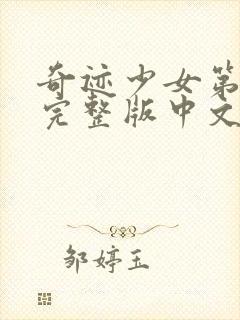 奇迹少女第
完整版中文
邹婷玉